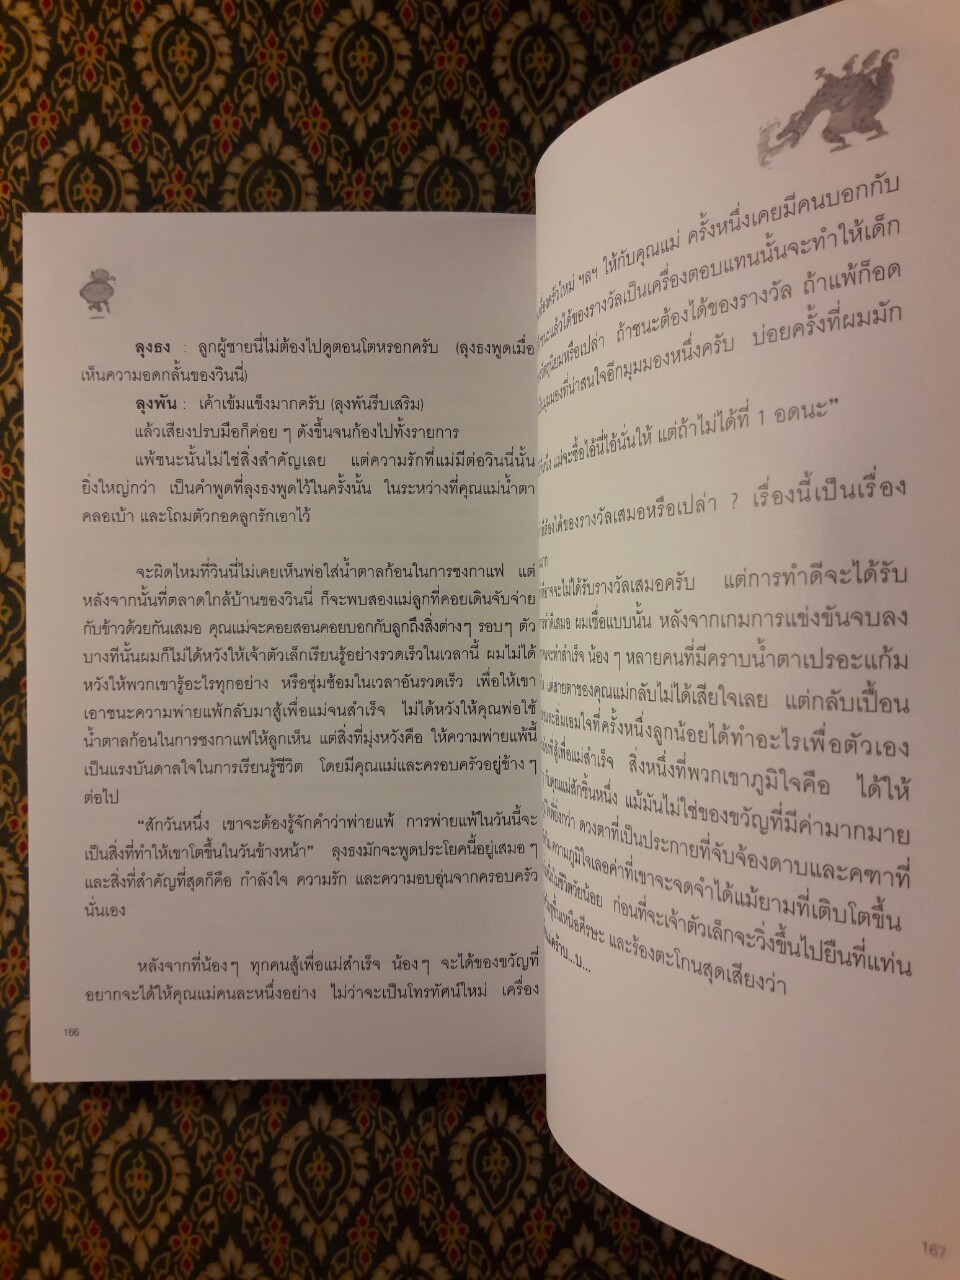 ลุงธง : ลูกผู้ชายนี่ไม่ต้องไปดูตอนโตหรอกครับ (ลุงธงพูดเมื่อ
เห็นความอดกลั้นของวินนี่)
ลุงพัน : เค้าเข้มแข็งมากครับ (ลุงพันรีบเสริม)
แล้วเสียงปรบมือก็ค่อย ๆ ดังขึ้นจนก้องไปทั้งรายการ
แพ้ชนะนั้นไม่ใช่สิ่งสำคัญเลย แต่ความรักที่แม่มีต่อวินนี่นั้น
ยิ่งใหญ่กว่า เป็นคำพูดที่ลุงธงพูดไว้ในครั้งนั้น ในระหว่างที่คุณแม่น้ำตา
คลอเบ้า และโถมตัวกอดลูกรักเอาไว้
จะผิดไหมที่วินนี่ไม่เคยเห็นพ่อใส่น้ำตาลก้อนในการชงกาแฟ แต่
หลังจากนั้นที่ตลาดใกล้บ้านของวินนี่ ก็จะพบสองแม่ลูกที่คอยเดินจับจ่าย
กับข้าวด้วยกันเสมอ คุณแม่จะคอยสอนคอยบอกกับลูกถึงสิ่งต่างๆ รอบๆ ตัว
บางทีนั้นผมก็ไม่ได้หวังให้เจ้าตัวเล็กเรียนรู้อย่างรวดเร็วในเวลานี้ ผมไม่ได้
หวังให้พวกเขารู้อะไรทุกอย่าง หรือซุ่มซ้อมในเวลาอันรวดเร็ว เพื่อให้เขา
เอาชนะความพ่ายแพ้กลับมาสู้เพื่อแม่จนสำเร็จ ไม่ได้หวังให้คุณพ่อใช้
น้ำตาลก้อนในการชงกาแฟให้ลูกเห็น แต่สิ่งที่มุ่งหวังคือ ให้ความพ่ายแพ้นี้
เป็นแรงบันดาลใจในการเรียนรู้ชีวิต โดยมีคุณแม่และครอบครัวอยู่ข้าง ๆ
ต่อไป
“สักวันหนึ่ง เขาจะต้องรู้จักคำว่าพ่ายแพ้ การพ่ายแพ้ในวันนี้จะ
เป็นสิ่งที่ทำให้เขาโตขึ้นในวันข้างหน้า” ลุงธงมักจะพูดประโยคนี้อยู่เสมอ ๆ
และสิ่งที่สำคัญที่สุดก็คือ กำลังใจ ความรัก และความอบอุ่นจากครอบครัว
นั่นเอง
หลังจากที่น้อง ๆ ทุกคนสู้เพื่อแม่สำเร็จ น้อง ๆ จะได้ของขวัญที่
อยากจะได้ให้คุณแม่คนละหนึ่งอย่าง ไม่ว่าจะเป็นโทรทัศน์ใหม่ เครื่อง
166
ครัวใหม่ ฯลฯ ให้กับคุณแม่ ครั้งหนึ่งเคยมีคนบอกกับ
ชนะแล้วได้ของรางวัลเป็นเครื่องตอบแทนนั้นจะทำให้เด็ก
วัตถุนิยมหรือเปล่า ถ้าชนะต้องได้ของรางวัล ถ้าแพ้ก็อด
มุมมองที่น่าสนใจอีกมุมมองหนึ่งครับ บ่อยครั้งที่ผมมัก
แม่จะซื้อไอ้นี่ไอ้นั่นให้ แต่ถ้าไม่ได้ที่ 1 อดนะ”
ต้องได้ของรางวัลเสมอหรือเปล่า ? เรื่องนี้เป็นเรื่อง
จะไม่ได้รับรางวัลเสมอครับ แต่การทำดีจะได้รับ
เสมอ ผมเชื่อแบบนั้น หลังจากเกมการแข่งขันจบลง
ทำสำเร็จ น้อง ๆ หลายคนที่มีคราบน้ำตาเปรอะแก้ม
สายตาของคุณแม่กลับไม่ได้เสียใจเลย แต่กลับเปื้อน
อิ่มเอมใจที่ครั้งหนึ่งลูกน้อยได้ทำอะไรเพื่อตัวเอง
สู้เพื่อแม่สำเร็จ สิ่งหนึ่งที่พวกเขาภูมิใจคือ ได้ให้
กับคุณแม่สักชิ้นหนึ่ง แม้มันไม่ใช่ของขวัญที่มีค่ามากมาย
กว่า ดวงตาที่เป็นประกายที่จับจ้องดาบและคฑาที่
ความภูมิใจเลอค่าที่เขาจะจดจำได้แม้ยามที่เติบโตขึ้น
ชีวิตวัยน้อย ก่อนที่จะเจ้าตัวเล็กจะวิ่งขึ้นไปยืนที่แท่น
ชูขึ้นเหนือศีรษะ และร้องตะโกนสุดเสียงว่า
167